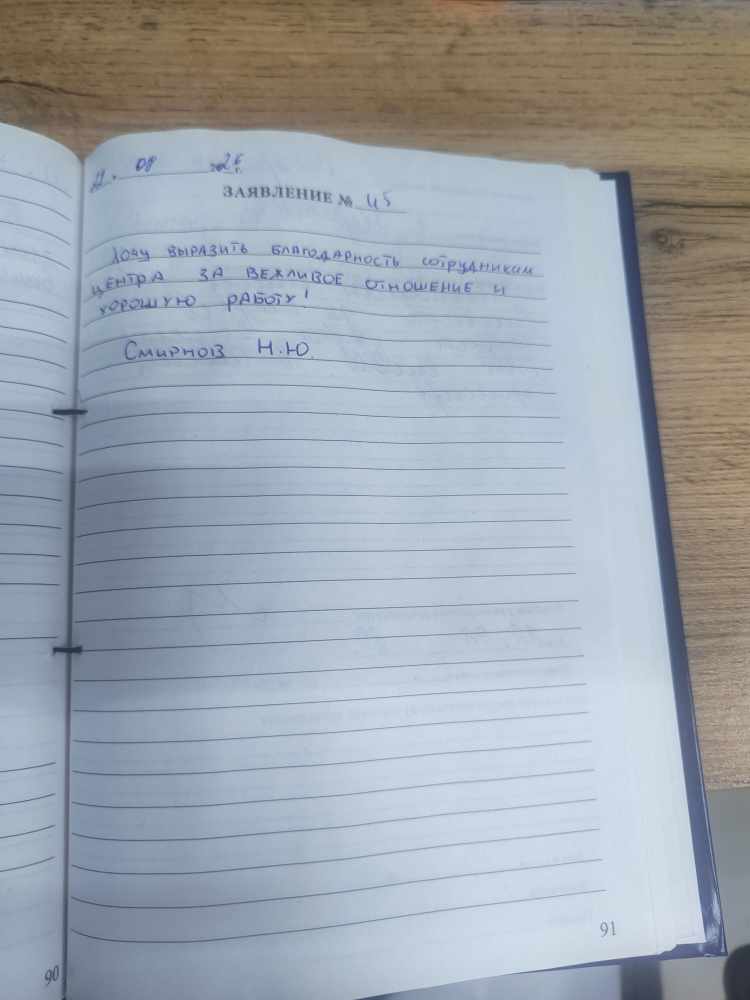 08 26 г.
ЗАЯВЛЕНИЕ № 45
Хочу выразить благодарность сотрудникам
центра за вежливое отношение и
хорошую работу!
Смирнов Н.Ю
90
91